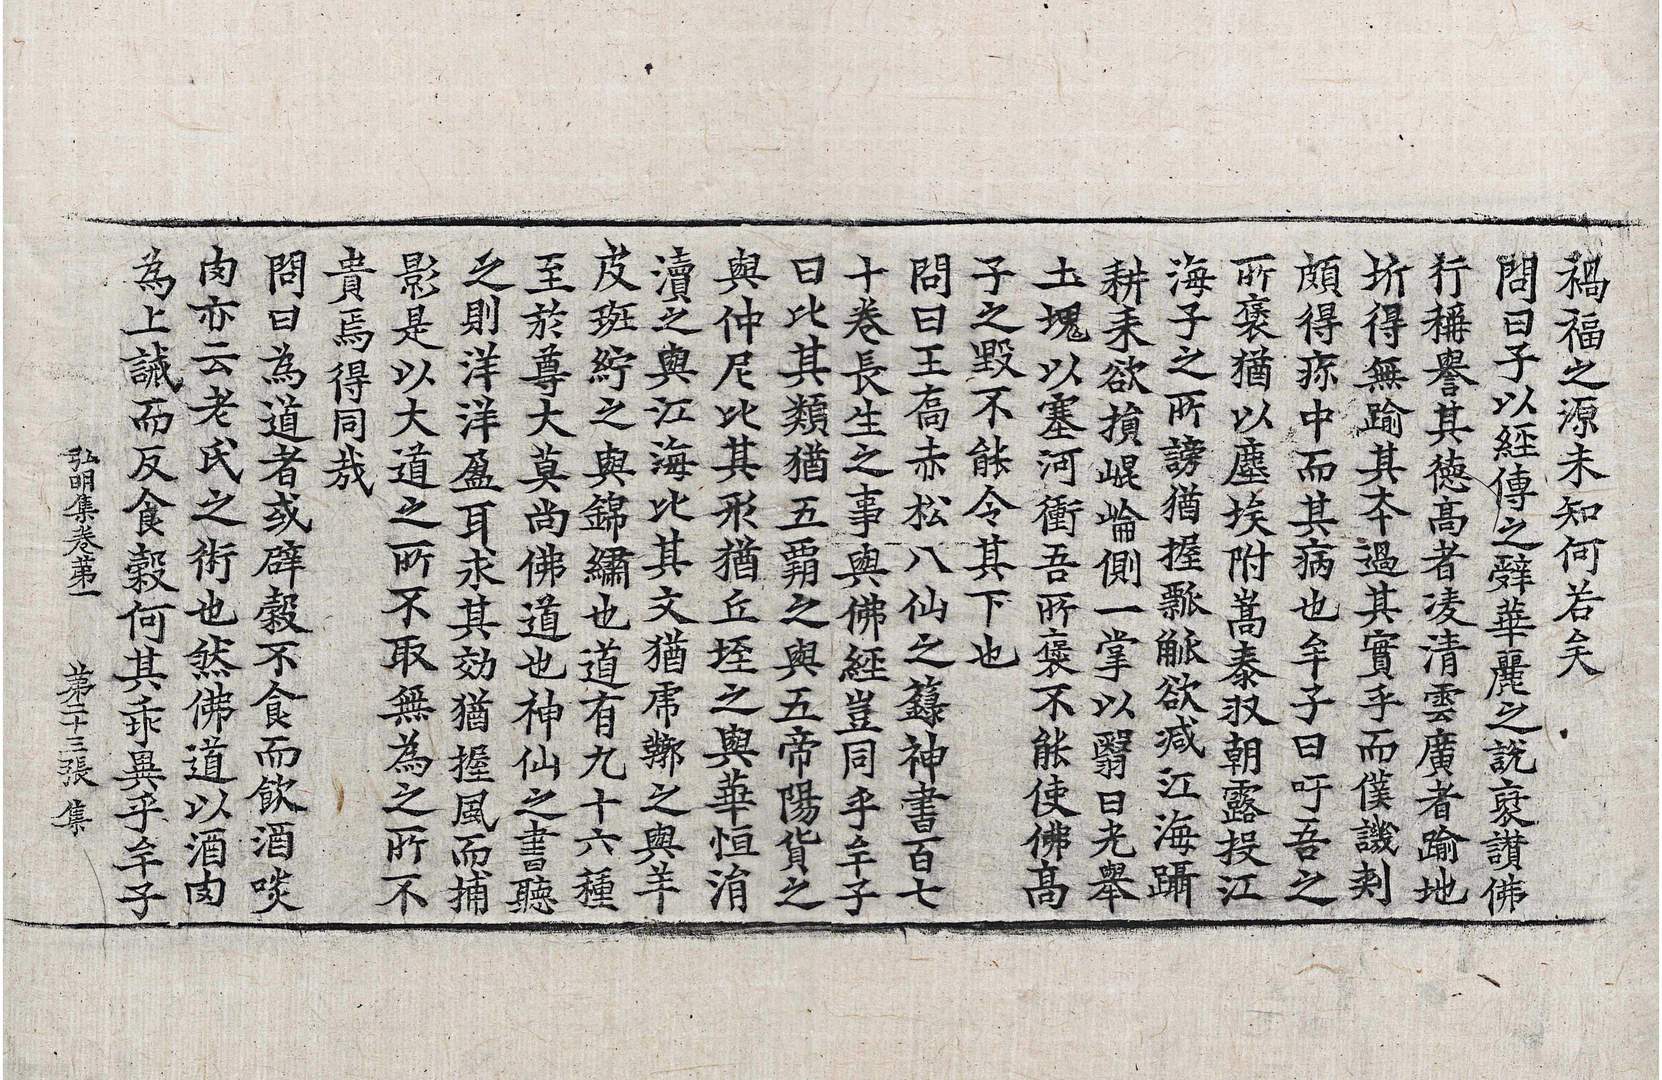 禍福之源未知何若矣
問曰子以經傳之辭華麗之說褒讚佛
行稱譽其德高者凌清雲廣者踰地
圻得無踰其本過其實乎而僕譏刺
頗得疹中而其病也牟子曰吁吾之
所褒猶以塵埃附嵩泰収朝露投江
海子之所謗猶握瓢觚欲减江海躡
耕耒欲損崐崘側一掌以翳日光舉
土塊以塞河衝吾所褒不能使佛高
子之毀不能令其下也
問曰王喬赤松八仙之籙神書百七
十卷長生之事與佛經豈同乎牟子
曰比其類猶五霸之與五帝陽貨之
與仲尼比其形猶丘垤之與華恒涓
瀆之與江海比其文猶虎鞹之與羊
皮斑紵之與錦繡也道有九十六種
至於尊大莫尚佛道也神仙之書聽
之則洋洋盈耳求其効猶握風而捕
影是以大道之所不取無為之所不
貴焉得同哉
問曰為道者或辟穀不食而飲酒啖
肉亦云老氏之術也然佛道以酒肉
為上誡而反食穀何其乖異乎牟子
弘明集卷第一 第二十三張 集